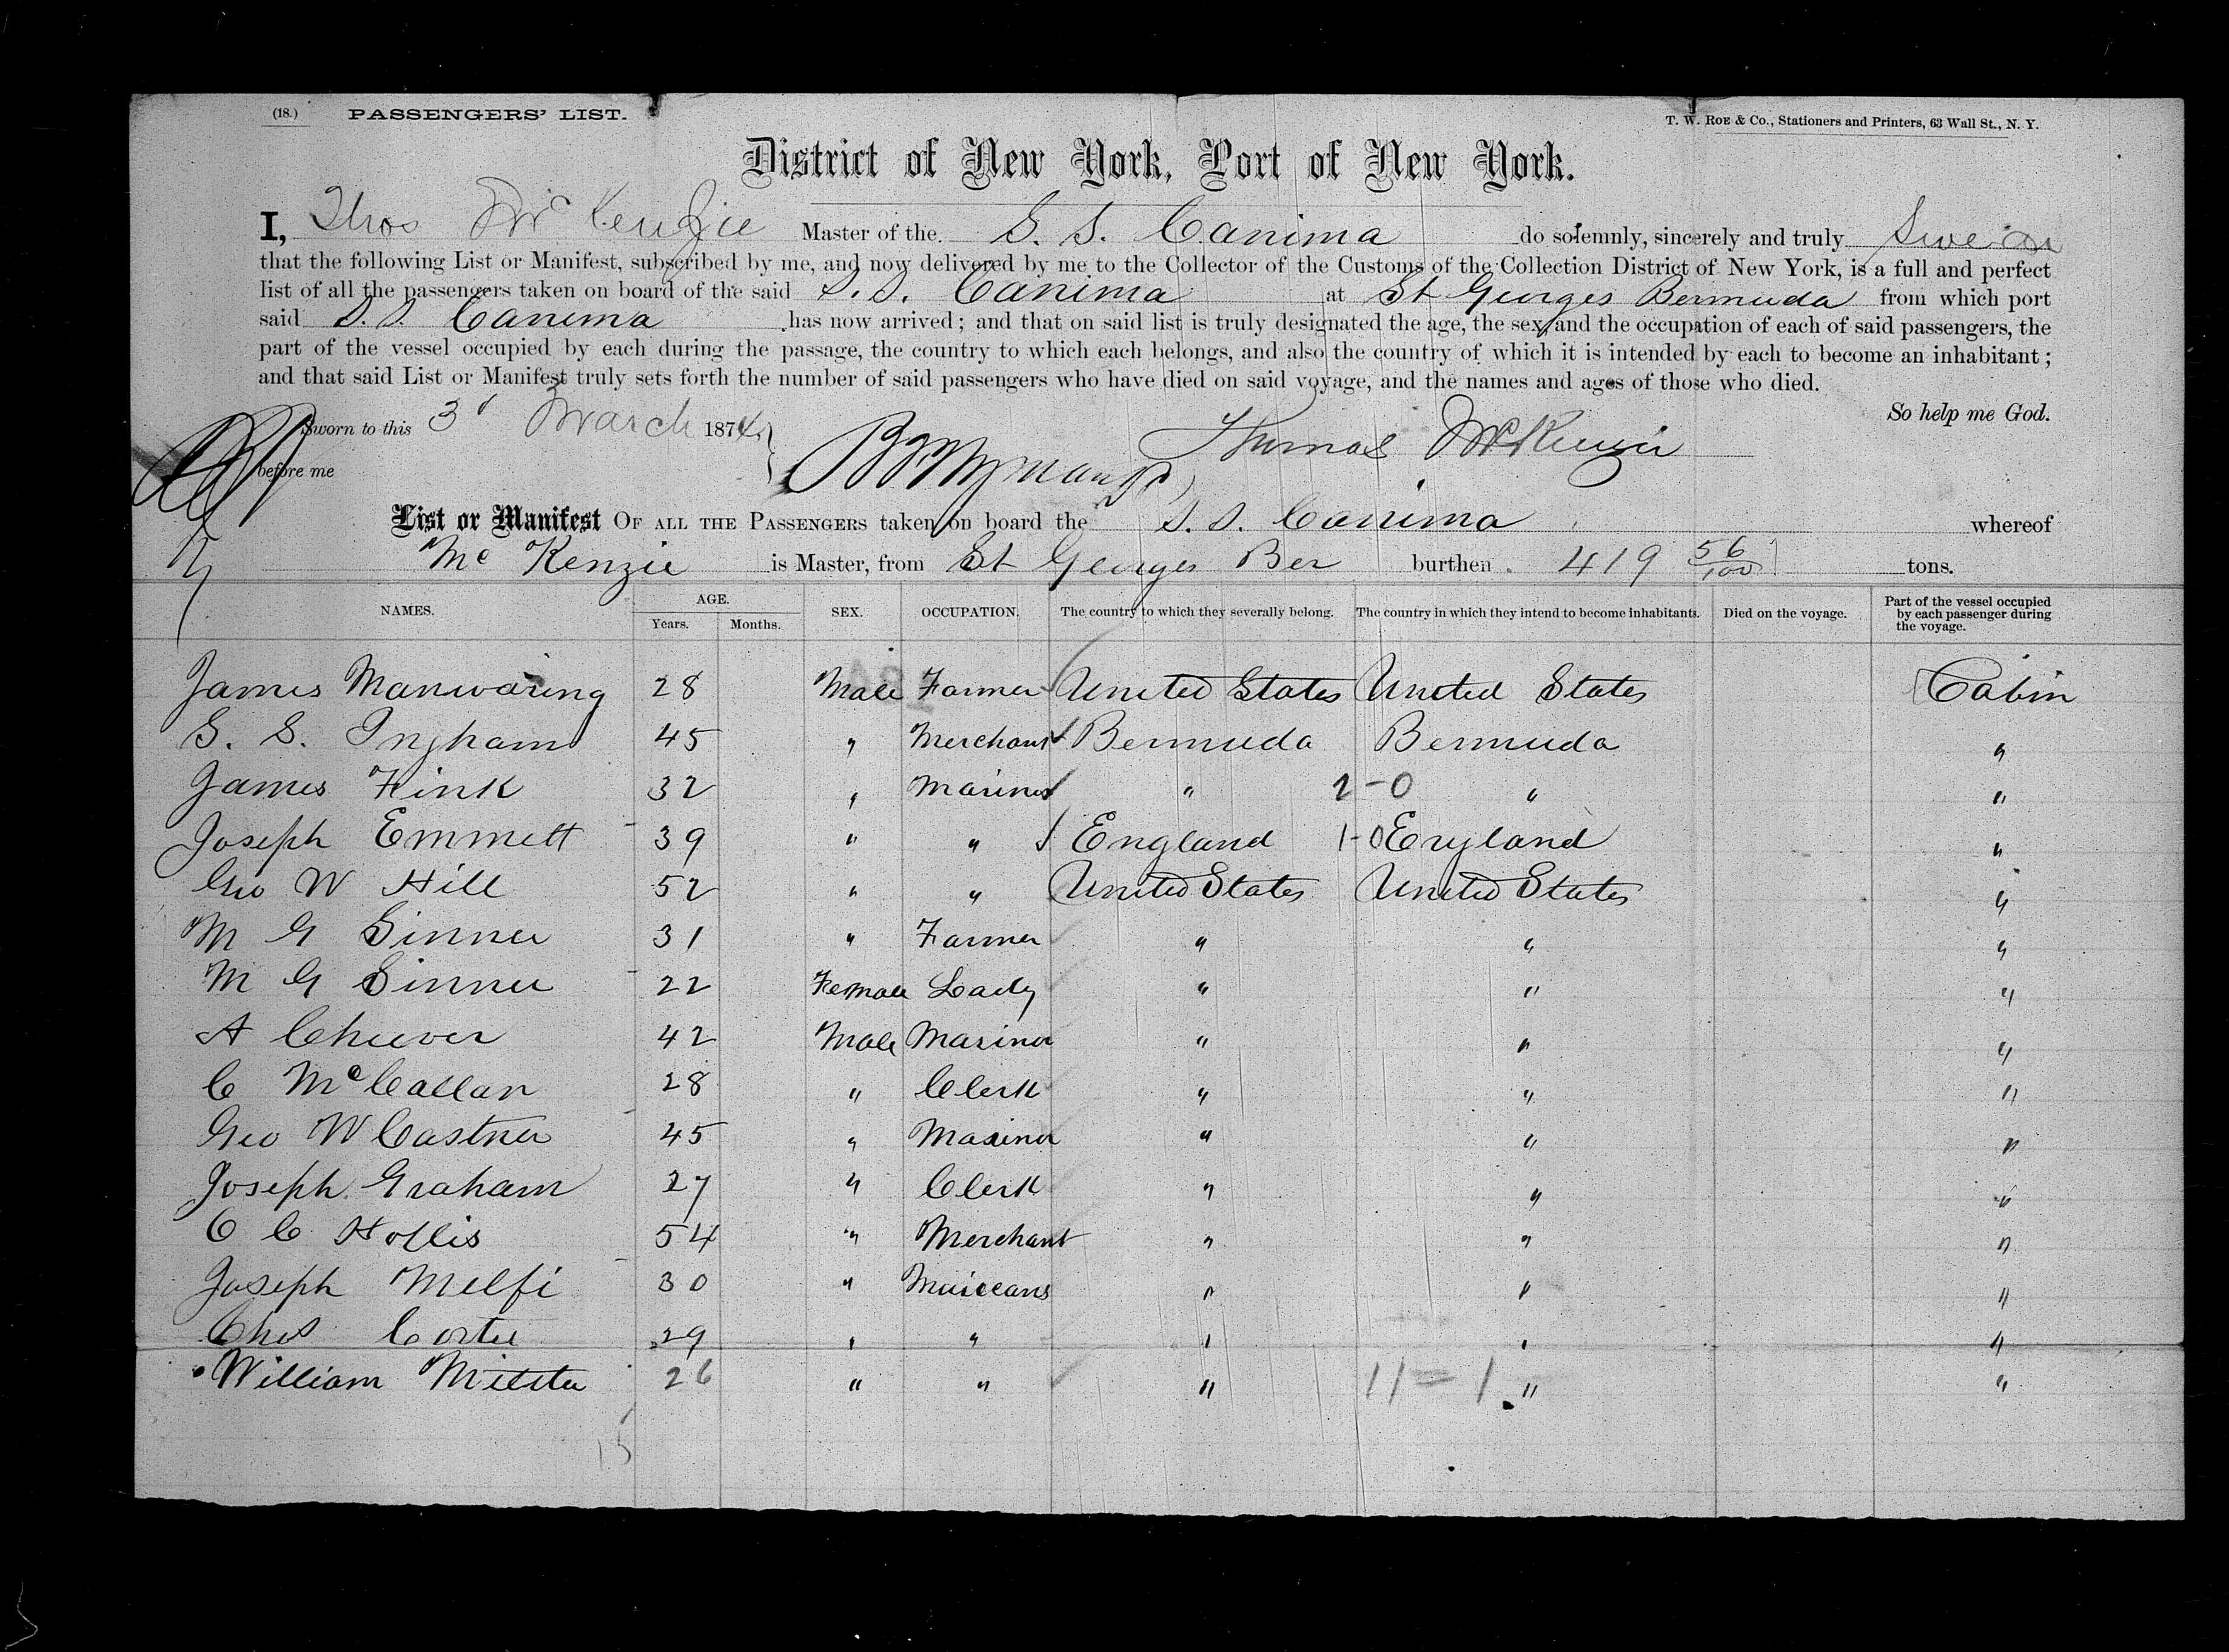 (18.) PASSENGERS' LIST. T. W. ROE & Co., Stationers and Printers, 63 Wall St., N. Y.
District of New York, Port of New York.
I, Thos McKenzie Master of the S. S. Canima do solemnly, sincerely and truly Swear
that the following List or Manifest, subscribed by me, and now delivered by me to the Collector of the Customs of the Collection District of New York, is a full and perfect
list of all the passengers taken on board of the said S. S. Canima at St Georges Bermuda from which port
said S. S. Canima has now arrived; and that on said list is truly designated the age, the sex, and the occupation of each of said passengers, the
part of the vessel occupied by each during the passage, the country to which each belongs, and also the country of which it is intended by each to become an inhabitant;
and that said List or Manifest truly sets forth the number of said passengers who have died on said voyage, and the names and ages of those who died.
So help me God.
Sworn to this 3d March 1874.
Thomas McKenzie
before me
List or Manifest OF ALL THE PASSENGERS taken on board the S. S. Canima whereof
McKenzie is Master, from St Georges Ber burthen 419 56/100 tons.
NAMES. AGE. Years. Months. SEX. OCCUPATION. The country to which they severally belong. The country in which they intend to become inhabitants. Died on the voyage. Part of the vessel occupied by each passenger during the voyage.
James Manwaring 28 Male Farmer United States United States Cabin
S. S. Ingham 45 " Merchant Bermuda Bermuda "
James Fink 32 " Mariner " 2-0 " "
Joseph Emmett 39 " " England 1-0 England "
Geo W Hill 52 " " United States United States "
M G Sinner 31 " Farmer " " "
M G Sinner 22 Female Lady " " "
A Cheever 42 Male Mariner " " "
C McCallan 28 " Clerk " " "
Geo W Castner 45 " Mariner " " "
Joseph Graham 27 " Clerk " " "
C C Hollis 54 " Merchant " " "
Joseph Melfi 30 " Musicans " " "
Chas Coster 29 " " " " "
William 26 " " " 11=1 " "
15